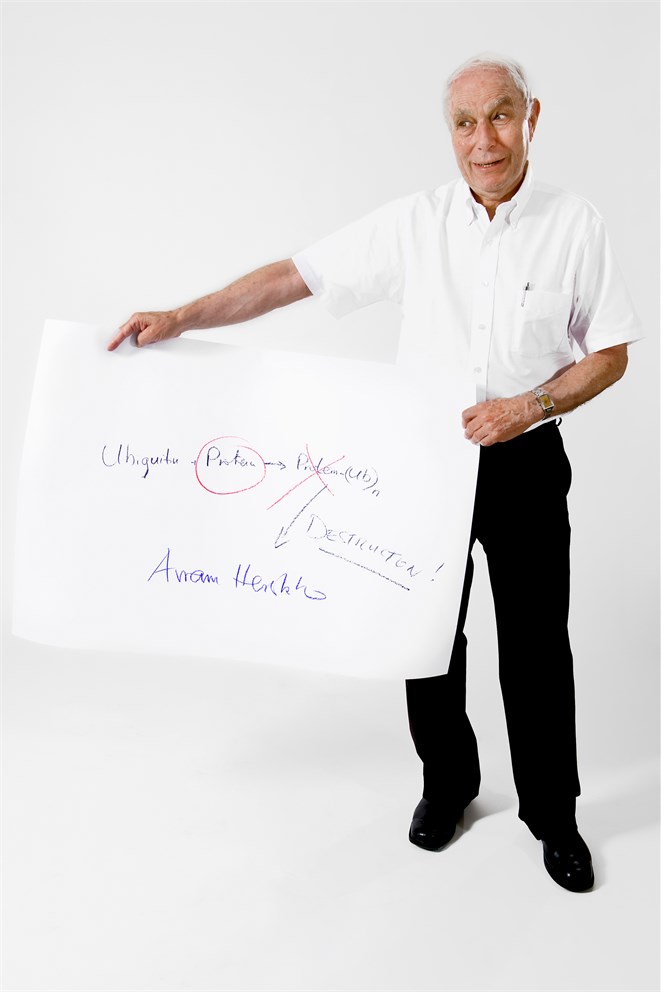 Ubiquitin + Protein → Protein-(Ub)n
DESTRUCTION!
Avram Hershko